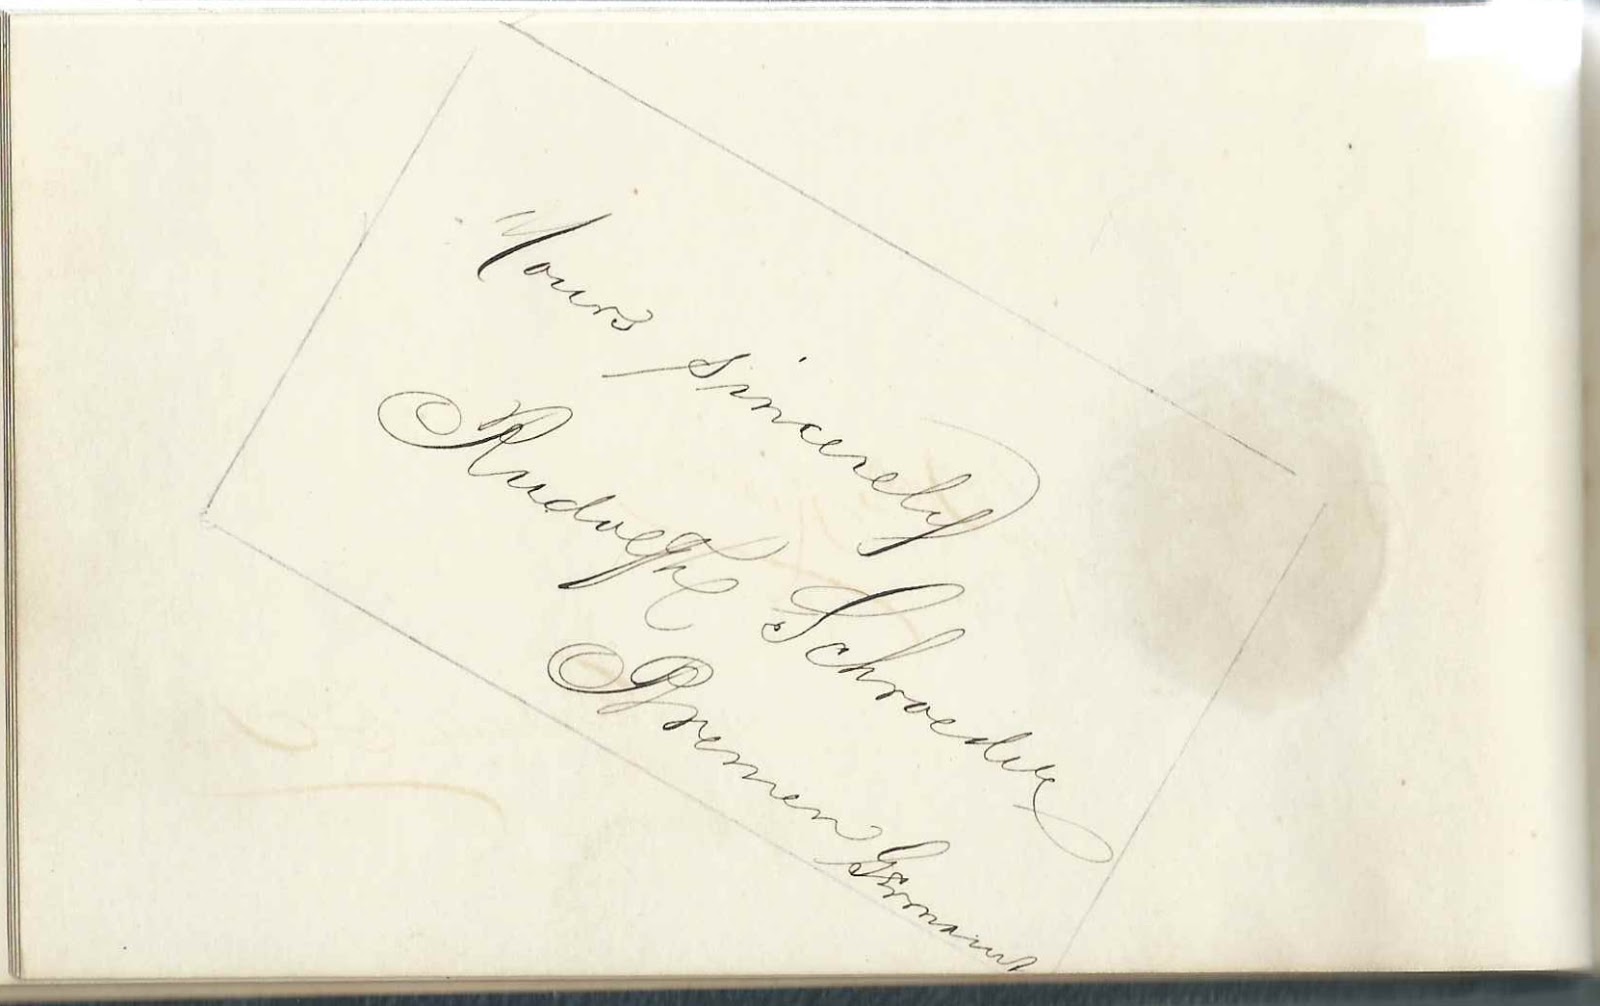 Yours sincerely
Rudolph Schroeder
Bremen Germany